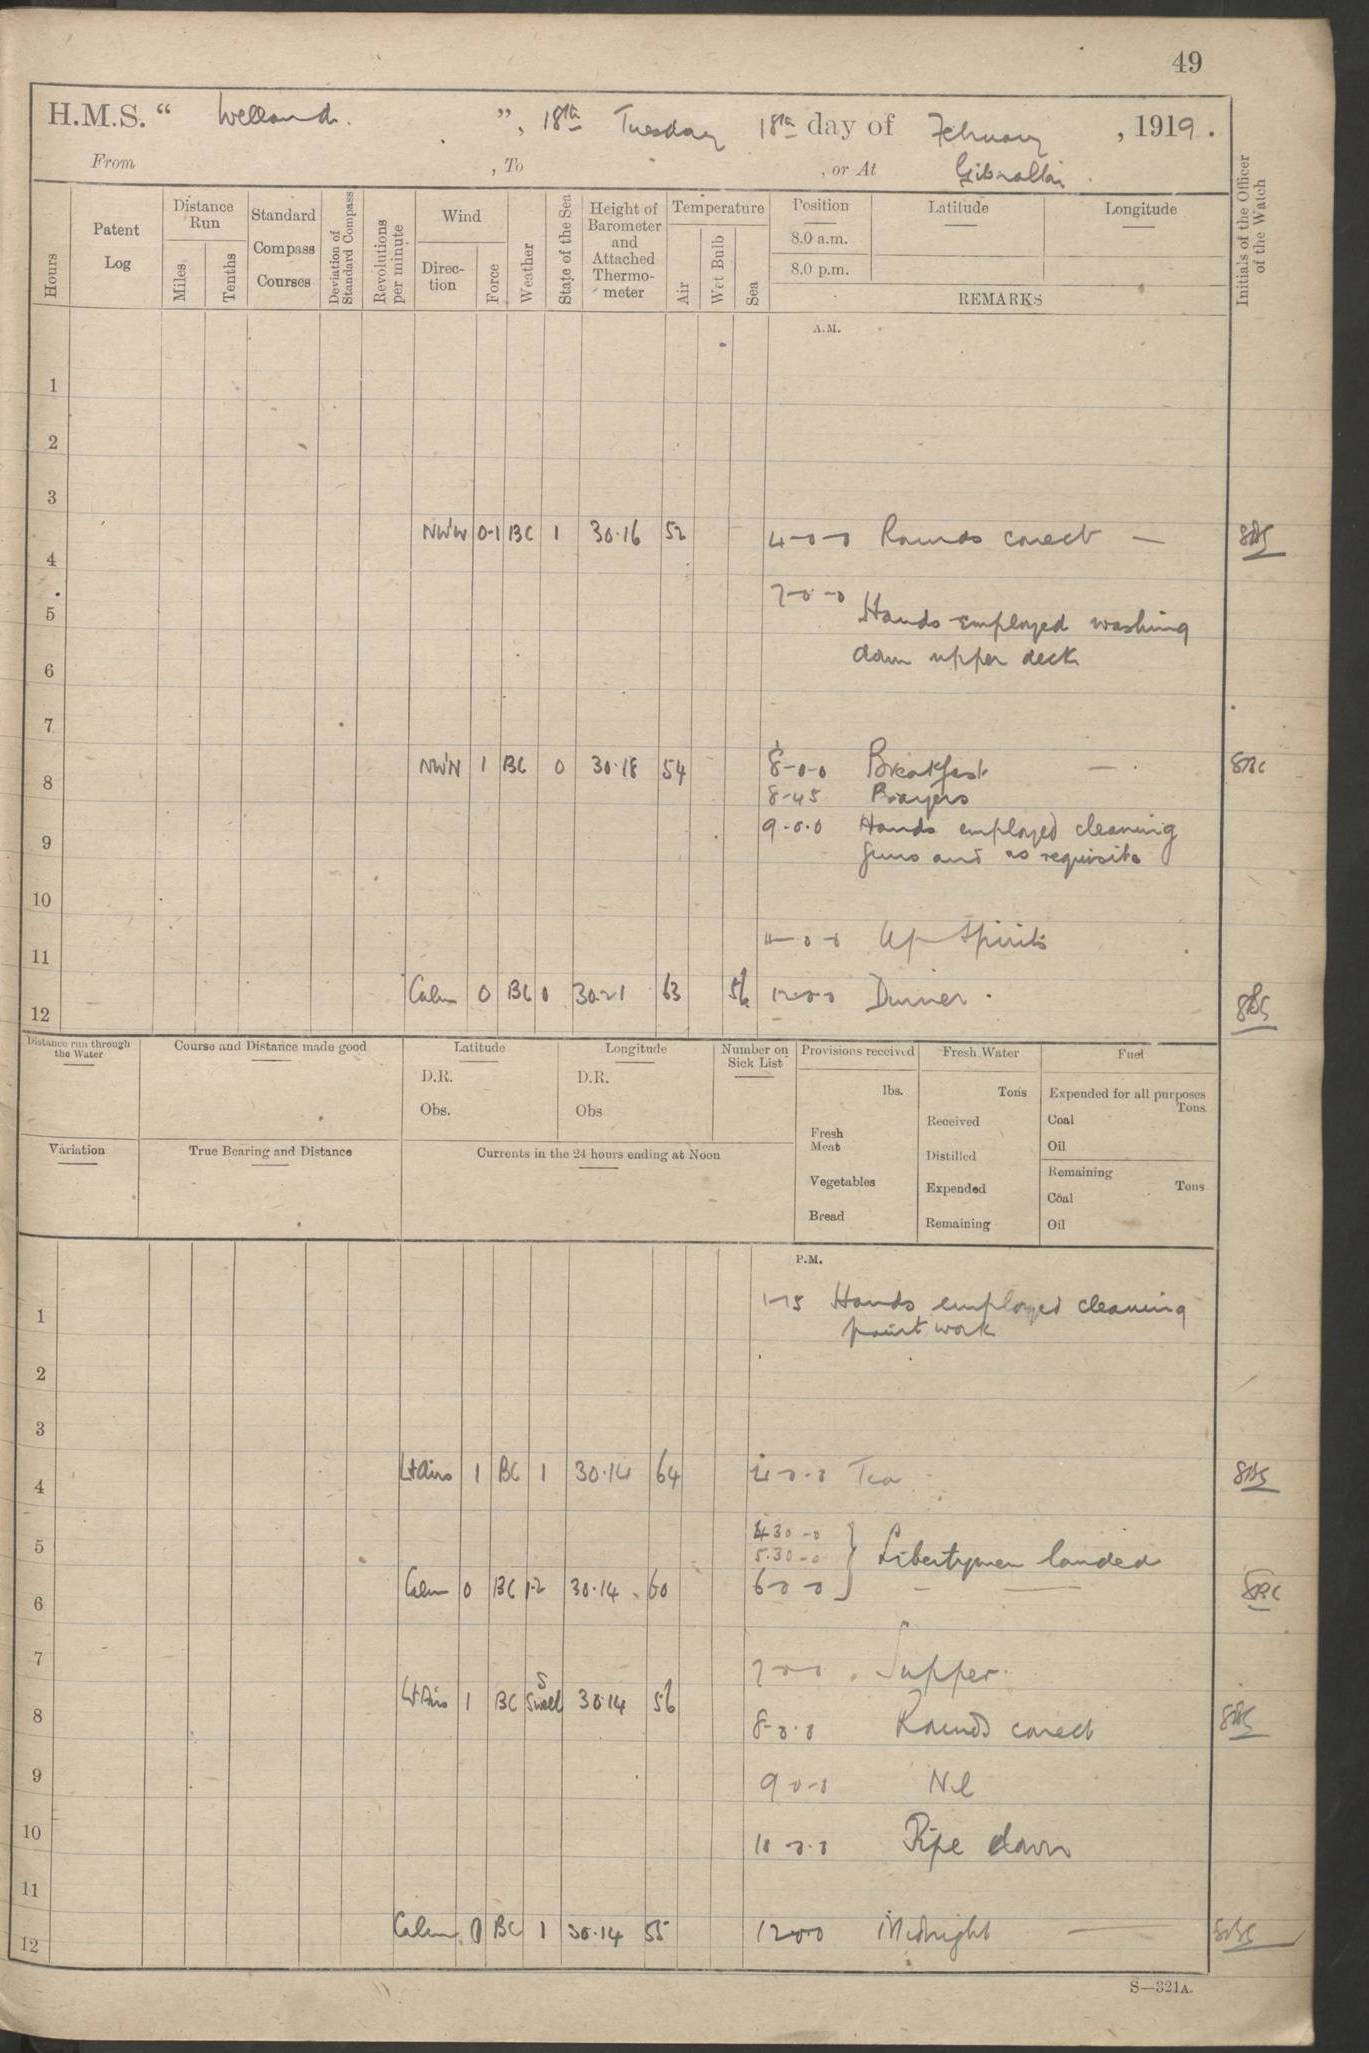 49
H.M.S. “ Welland. ”, 18th Tuesday 18th day of February , 1919 .
From , To , or At Gibraltar .
Hours
Patent Log
Distance Run
Miles
Tenths
Standard Compass Courses
Deviation of Standard Compass
Revolutions per minute
Wind
Direction
Force
Weather
State of the Sea
Height of Barometer and Attached Thermometer
Temperature
Air
Wet Bulb
Sea
Position
8.0 a.m.
8.0 p.m.
Latitude
Longitude
REMARKS
Initials of the Officer of the Watch
A.M.
1
2
3
4 NW'W 0-1 BC 1 30.16 52 4-0-0 Rounds corect —
5 7-0-0 Hands employed washing
6 down upper deck
7
8 NW'N 1 BC 0 30.18 54 8-0-0 Breakfast —
8-45 Prayers
9 9.0.0 Hands employed cleaning
guns and as requisite
10
11 11-0-0 Up Spirits
12 Calm 0 BC 0 30.21 63 56 12.0.0 Dinner.
Distance run through the Water
Course and Distance made good
Latitude
D.R.
Obs.
Longitude
D.R.
Obs
Number on Sick List
Provisions received
lbs.
Fresh Meat
Vegetables
Bread
Fresh Water
Tons
Received
Distilled
Expended
Remaining
Fuel
Expended for all purposes
Tons
Coal
Oil
Remaining
Tons
Coal
Oil
Variation
True Bearing and Distance
Currents in the 24 hours ending at Noon
P.M.
1 1-15 Hands employed cleaning
paint work
2
3
4 Lt Airs 1 BC 1 30.14 64 4.0.0 Tea
4.30-0
5 5.30-0 } Libertymen landed
6 Calm 0 BC 1-2 30.14 60 6-0-0
7 7-0-0 Supper.
8 Lt Airs 1 BC S Swell 30.14 56
8-0-0 Rounds corect
9 9 0-0 Nil
10 10-0-0 Pipe down
11
12 Calm 0 BC 1 30.14 55 12.0.0 Midnight —
S—321A.